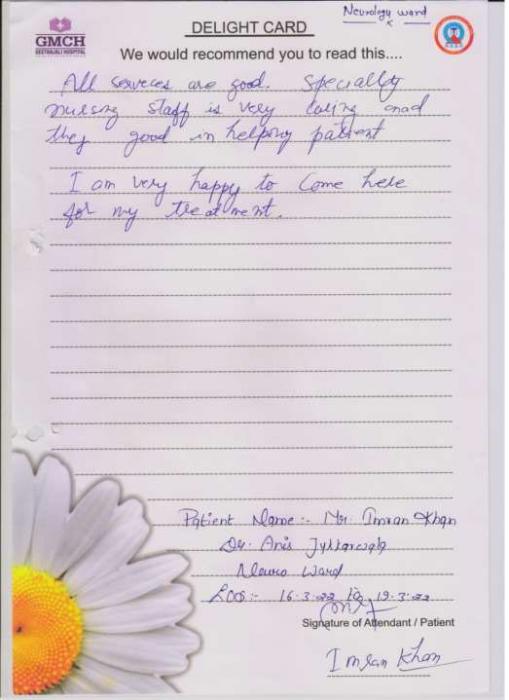 Neurology word
DELIGHT CARD
GMCH
GEETANJALI HOSPITAL
We would recommend you to read this....
All serveces are good. Specially
nursing staff is very caring and
they good in helping patient
I am very happy to come here
for my treatment.
Patient Name :- Mr. Imran Khan
Dr. Anis
Neuro Ward
16-3-22 to 19-3-22
Signature of Attendant / Patient
Imran Khan